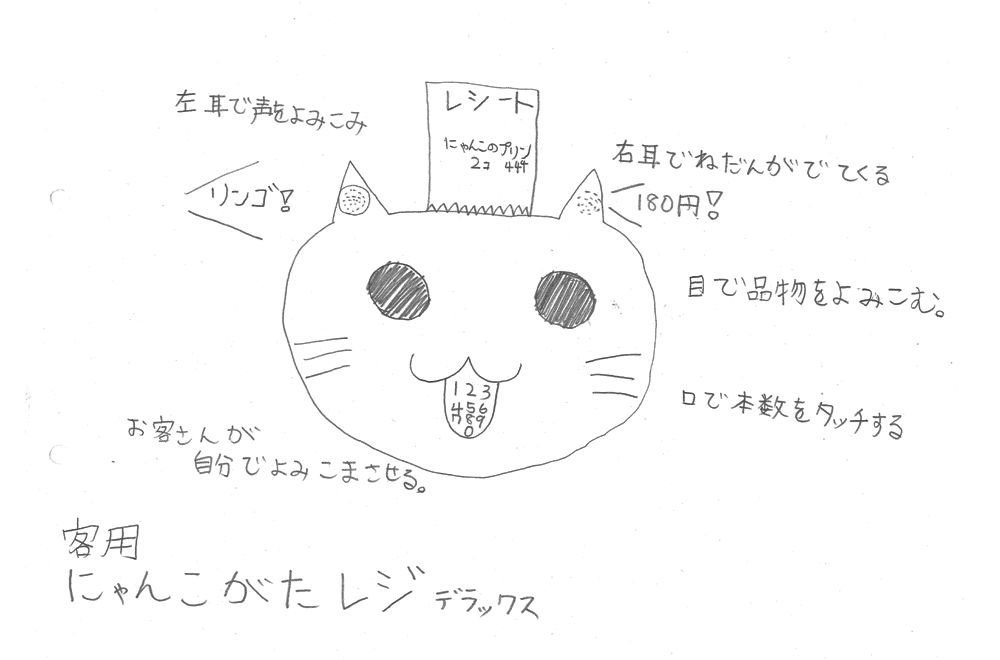 左耳で声をよみこみ
リンゴ!
レシート
にゃんこのプリン
2コ 444
右耳でねだんがでてくる
180円!
目で品物をよみこむ。
123
456
789
0
口で本数をタッチする
お客さんが
自分でよみこまさせる。
客用
にゃんこがたレジ デラックス